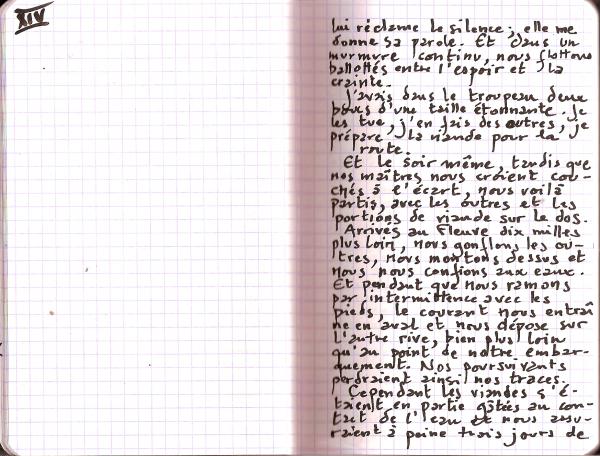 XIV
lui réclame le silence ; elle me
donne sa parole. Et dans un
murmure continu, nous flottons
ballottés entre l'espoir et la
crainte.
J'avais dans le troupeau deux
boucs d'une taille étonnante. Je
les tue, j'en fais des outres, je
prépare la viande pour la
route.
Et le soir même, tandis que
nos maîtres nous croient cou-
chés à l'écart, nous voilà
partis, avec les outres et les
portions de viande sur le dos.
Arrivés au fleuve dix milles
plus loin, nous gonflons les ou-
tres, nous montons dessus et
nous nous confions aux eaux.
Et pendant que nous ramons
par intermittence avec les
pieds, le courant nous entraî
ne en aval et nous dépose sur
l'autre rive, bien plus loin
qu'au point de notre embar-
quement. Nos poursuivants
perdraient ainsi nos traces.
Cependant les viandes s'é-
taient en partie gâtées au con-
tact de l'eau et nous assu-
raient à peine trois jours de